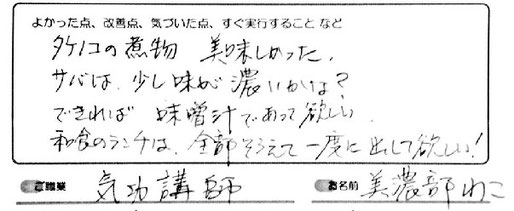 よかった点、改善点、気づいた点、すぐ実行すること など
タケノコの煮物 美味しかった。
サバは、少し味が濃いかな?
できれば 味噌汁であって欲しい。
和食のランチは、全部そろえて一度に出して欲しい!
ご職業 気功講師 お名前 美濃部わこ